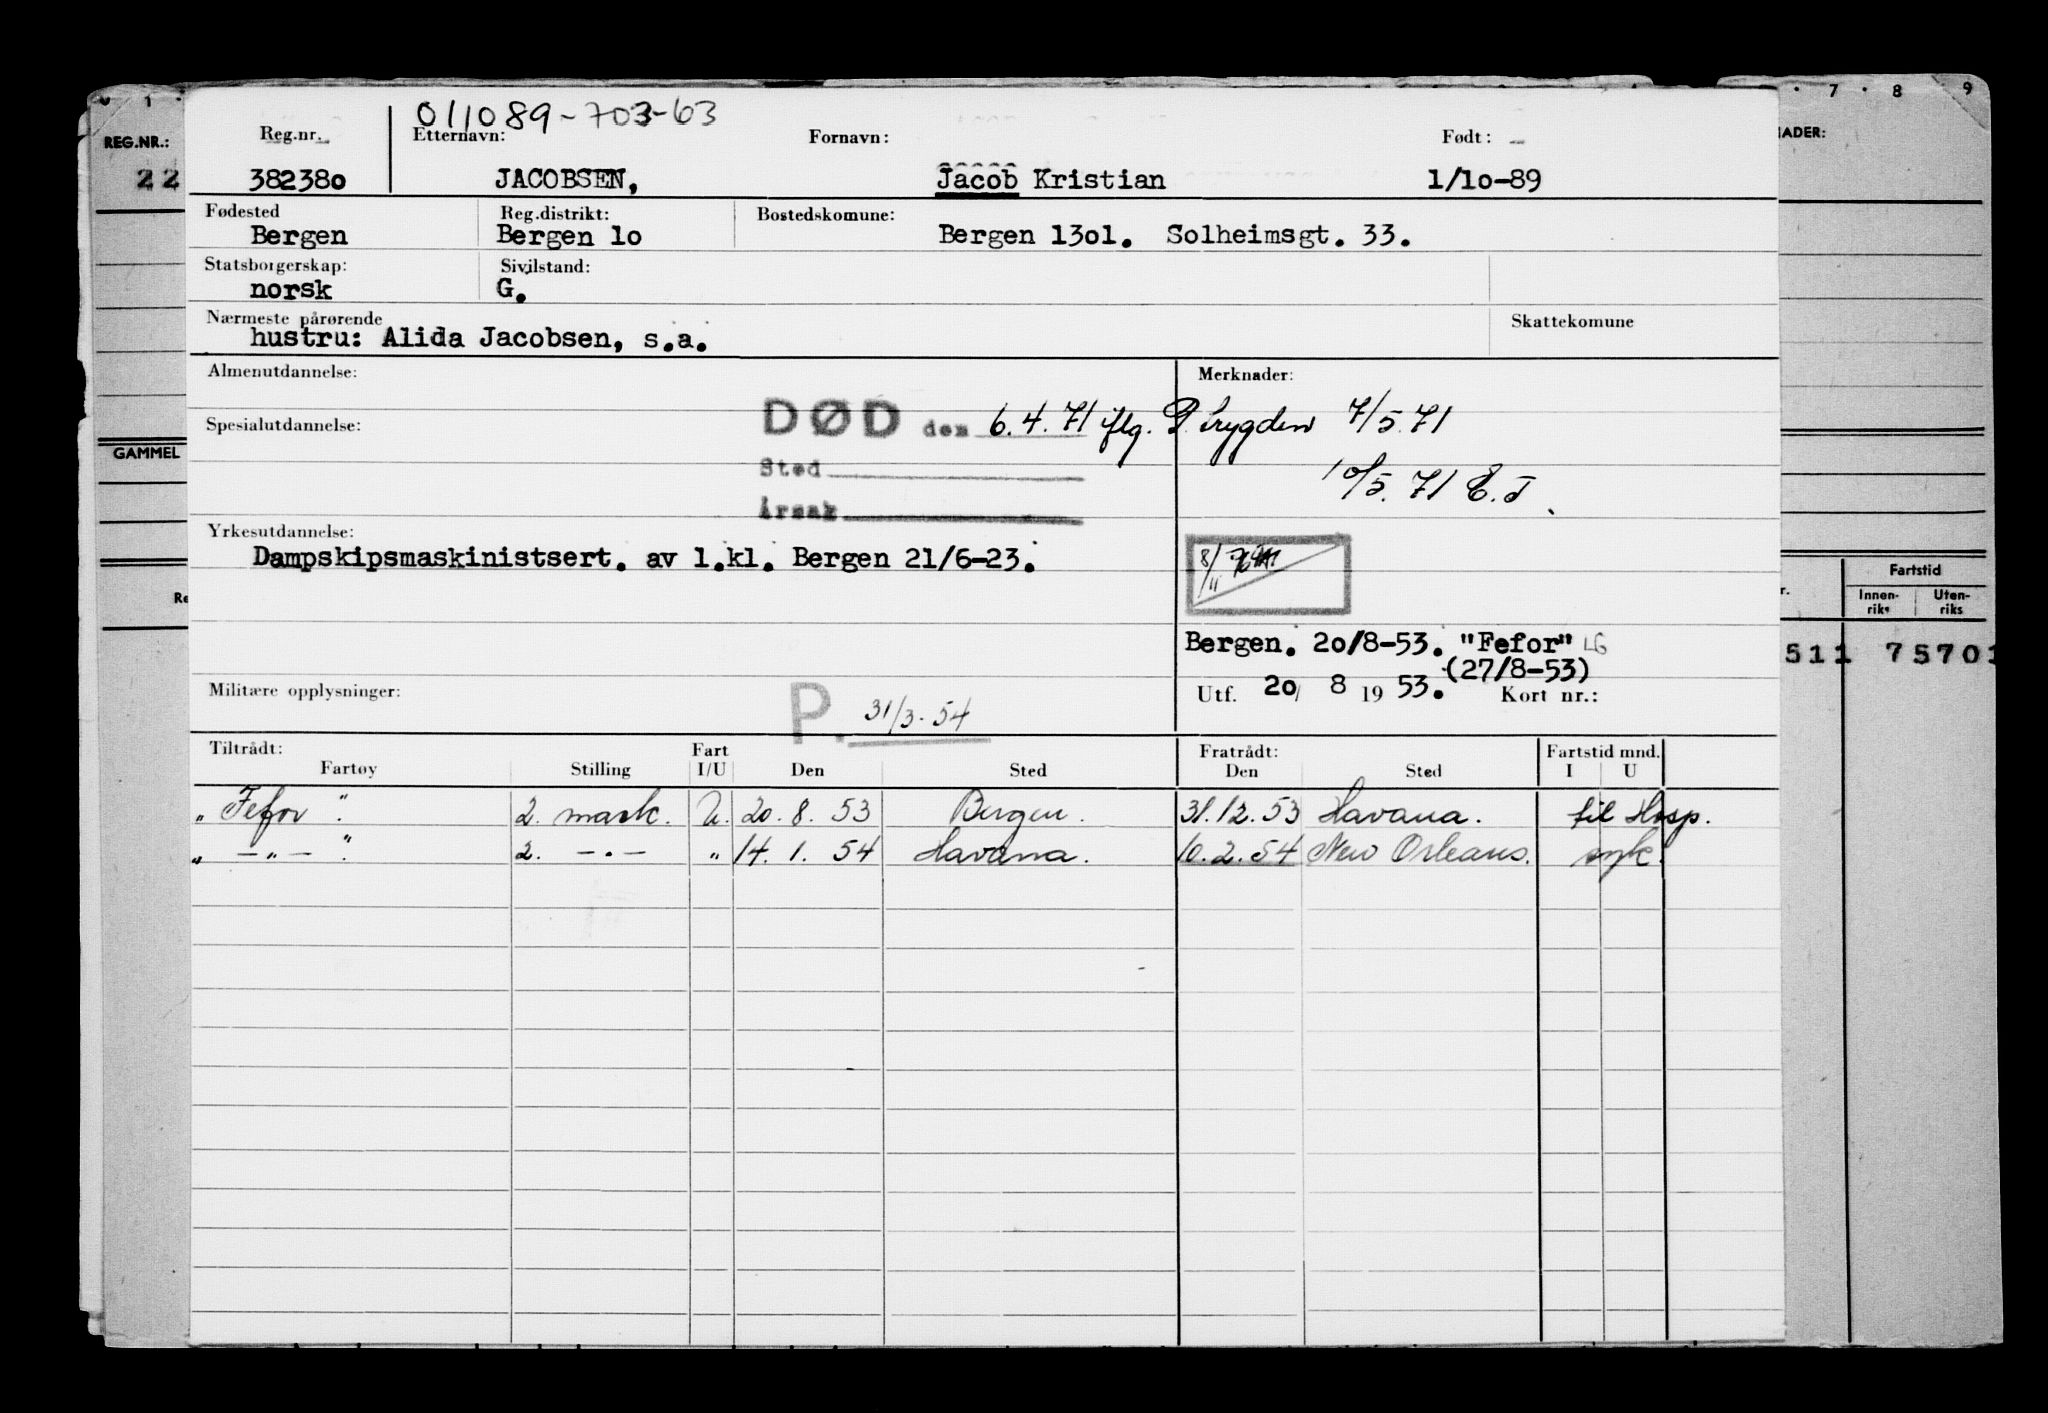 0 1 . . 7 . 8 9
011089-703-63
REG.NR.: Reg.nr. Etternavn: Fornavn: Født: NADER:
22 38238o JACOBSEN, Jacob Kristian 1/1o-89
Fødested Reg.distrikt: Bostedskomune:
Bergen Bergen 1o Bergen 13o1. Solheimsgt. 33.
Statsborgerskap: Sivilstand:
norsk G.
Nærmeste pårørende Skattekomune
hustru: Alida Jacobsen, s.a.
Almenutdannelse: Merknader:
DØD den 6.4.71 iflg. P. trygden 7/5.71
Spesialutdannelse:
GAMMEL
Sted 10/5.71 E.T.
Årsak
Yrkesutdannelse:
Dampskipsmaskinistsert. av 1.kl. Bergen 21/6-23.
8/11
Fartstid
Re r. Innen-riks Uten-riks
Bergen. 2o/8-53. "Fefor" LG
511 75701
(27/8-53)
Militære opplysninger: Utf. 2o/ 8 19 53. Kort nr.:
P. 31/3-54
Tiltrådt: Fart Fratrådt: Fartstid mnd.
Fartøy Stilling I/U Den Sted Den Sted I U
"Fefor". 2. mask. U. 20. 8. 53 Bergen. 31.12.53 Havana. til Hosp.
" -"- " 2. -"- " 14. 1. 54 Havana. 10.2.54 New Orleans. syk.